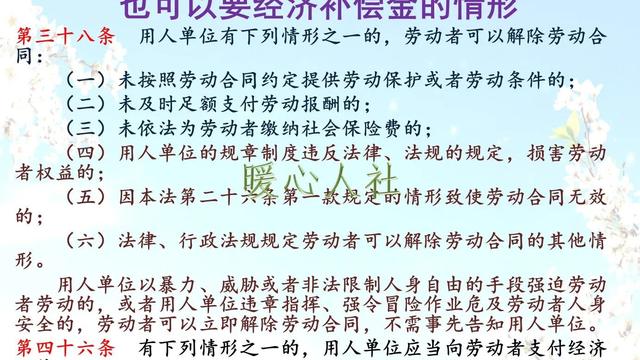 也可以要经济补偿金的情形
第三十八条 用人单位有下列情形之一的，劳动者可以解除劳动合
同：
（一）未按照劳动合同约定提供劳动保护或者劳动条件的；
（二）未及时足额支付劳动报酬的；
（三）未依法为劳动者缴纳社会保险费的；
（四）用人单位的规章制度违反法律、法规的规定，损害劳动
者权益的；
暖心人社
（五）因本法第二十六条第一款规定的情形致使劳动合同无效
的；
（六）法律、行政法规规定劳动者可以解除劳动合同的其他情
形。
用人单位以暴力、威胁或者非法限制人身自由的手段强迫劳动
者劳动的，或者用人单位违章指挥、强令冒险作业危及劳动者人身
安全的，劳动者可以立即解除劳动合同，不需事先告知用人单位。
第四十六条 有下列情形之一的，用人单位应当向劳动者支付经济